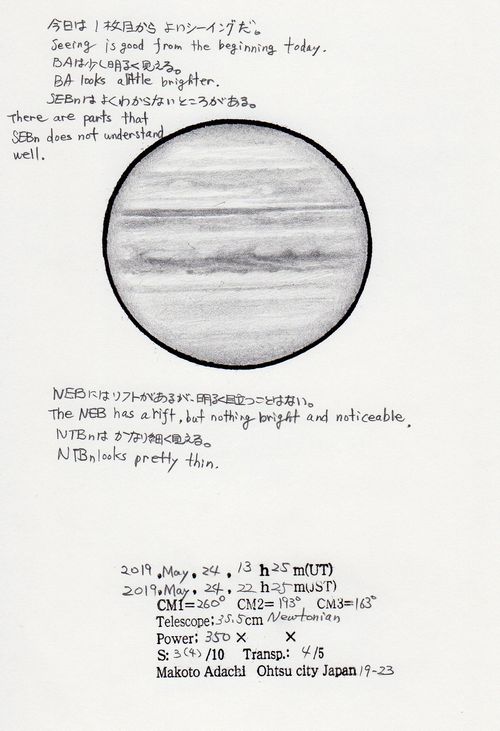 今日は1枚目から よいシーイングだ。
Seeing is good from the beginning today.
BAは少し明るく見える。
BA looks a little brighter.
SEBnは よくわからないところがある。
There are parts that
SEBn does not understand
well.
NEBにはリフトがあるが、明るく目立つことはない。
The NEB has a rift, but nothing bright and noticeable.
NTBnは かなり細く見える。
NTBn looks pretty thin.
2019.May.24.13 h 25 m(UT)
2019.May.24.22 h 25 m(JST)
CM1=260° CM2=193° CM3=163°
Telescope; 35.5cm Newtonian
Power: 350 × ×
S: 3(4)/10 Transp.: 4/5
Makoto Adachi Ohtsu city Japan 19-23